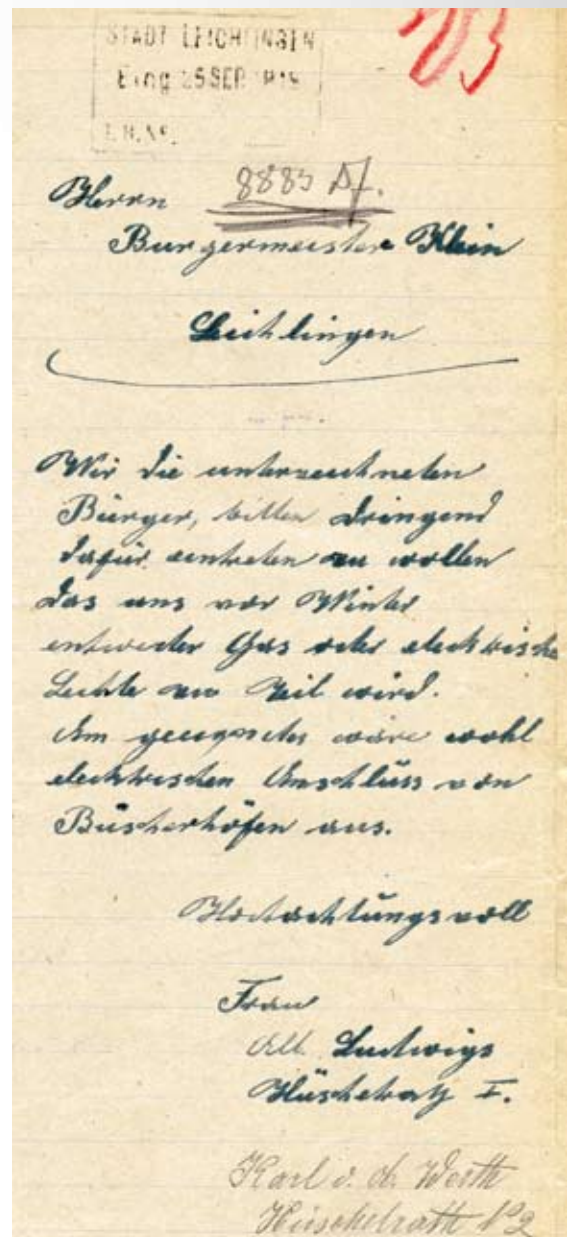 STADT LEICHLINGEN
Eing 25 SEP. 1919
8883
Herrn
Burgermeister Klein
Leichlingen
Wir die unterzeichneten
Bürger, bitten dringend
dafür eintreten zu wollen
das uns vor Winter
entweder Gas oder elecktrische
Lechte zu Teil wird.
Am geeignesten wäre wohl
elecktrischen Anschlüss von
Büscherhöfen aus.
Hochachtungsvoll
Frau
Alb. Ludwigs
Hüschelrath I.
Karl v. d. Werth
Hüschelrath No 2